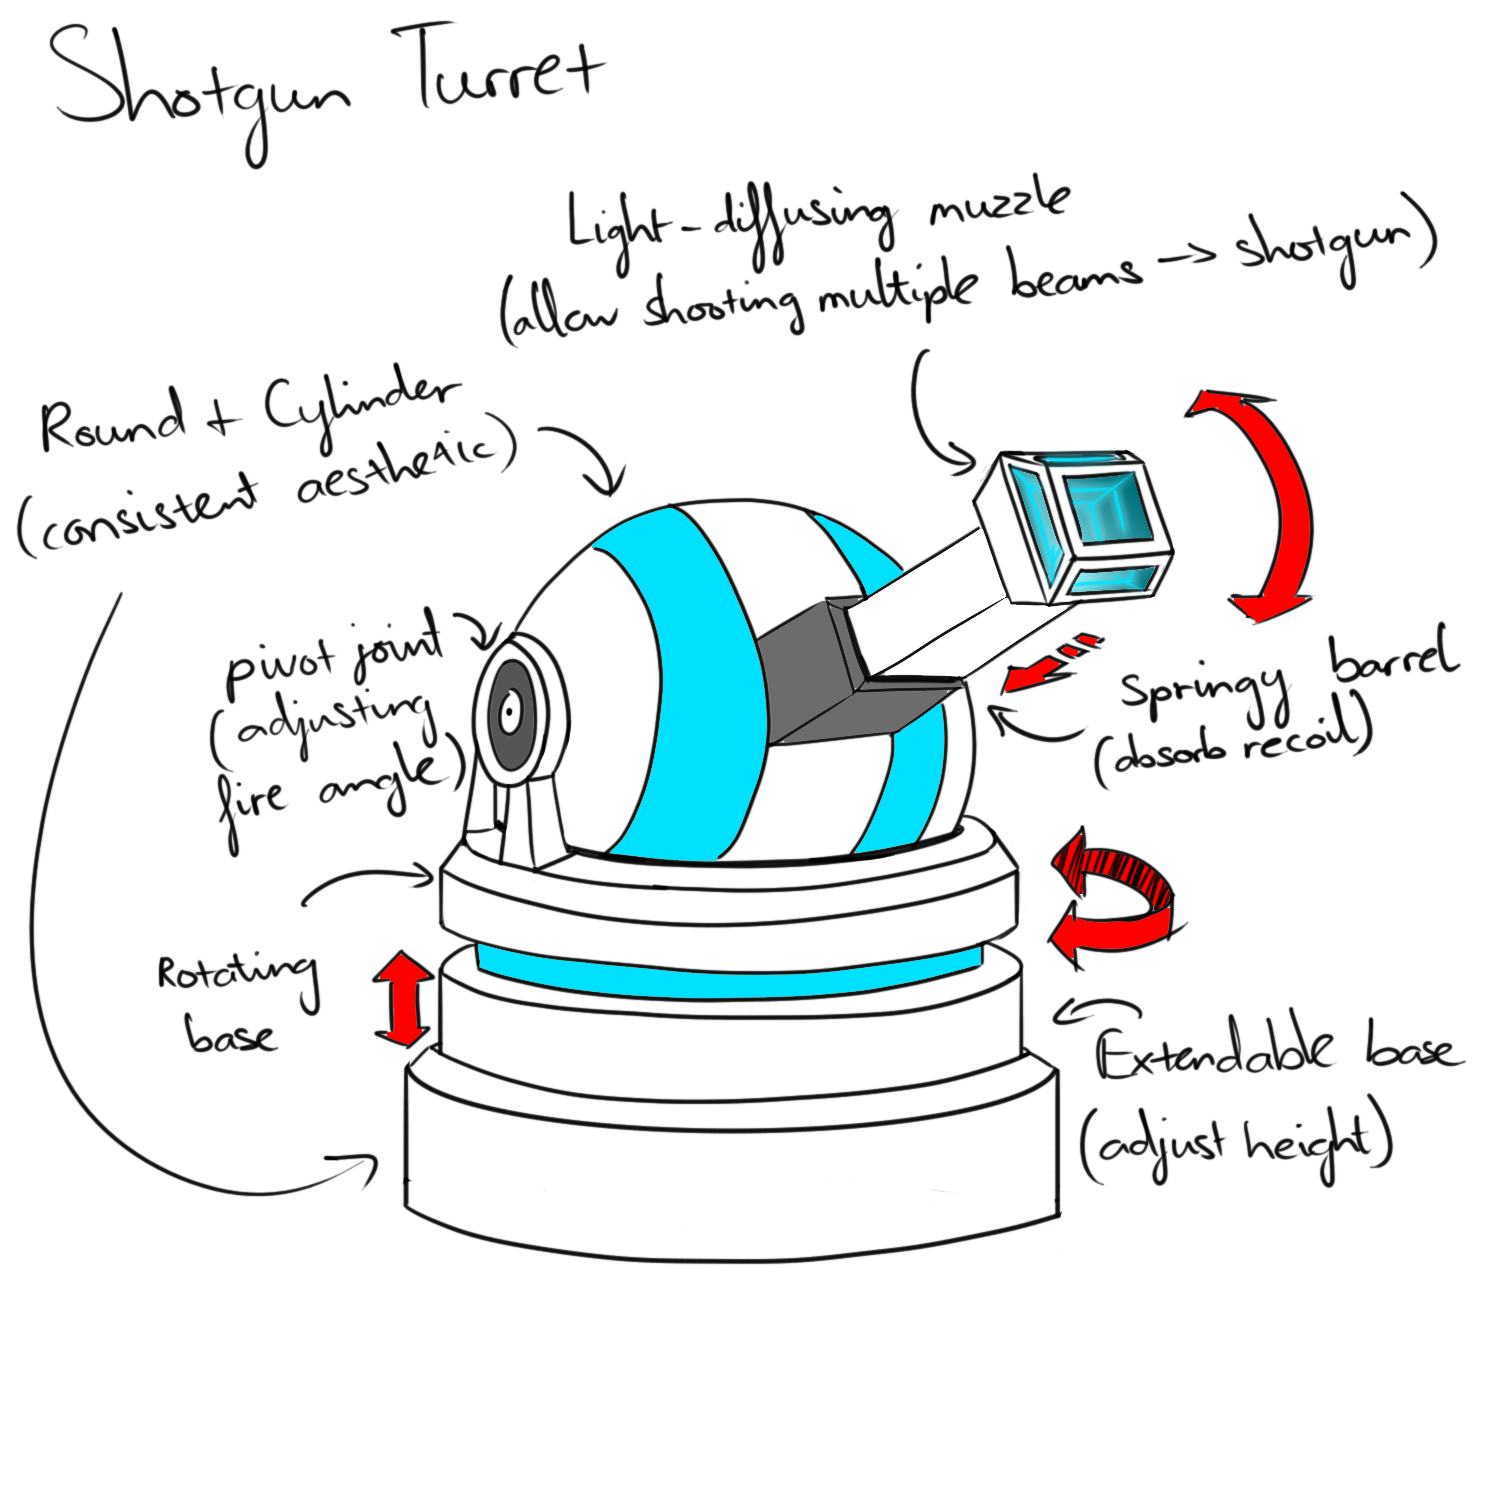 Shotgun Turret
Light-diffusing muzzle
(allow shooting multiple beams -> shotgun)
Round + Cylinder
(consistent aesthetic)
pivot joint
(adjusting
fire angle)
Springy barrel
(absorb recoil)
Rotating
base
Extendable base
(adjust height)